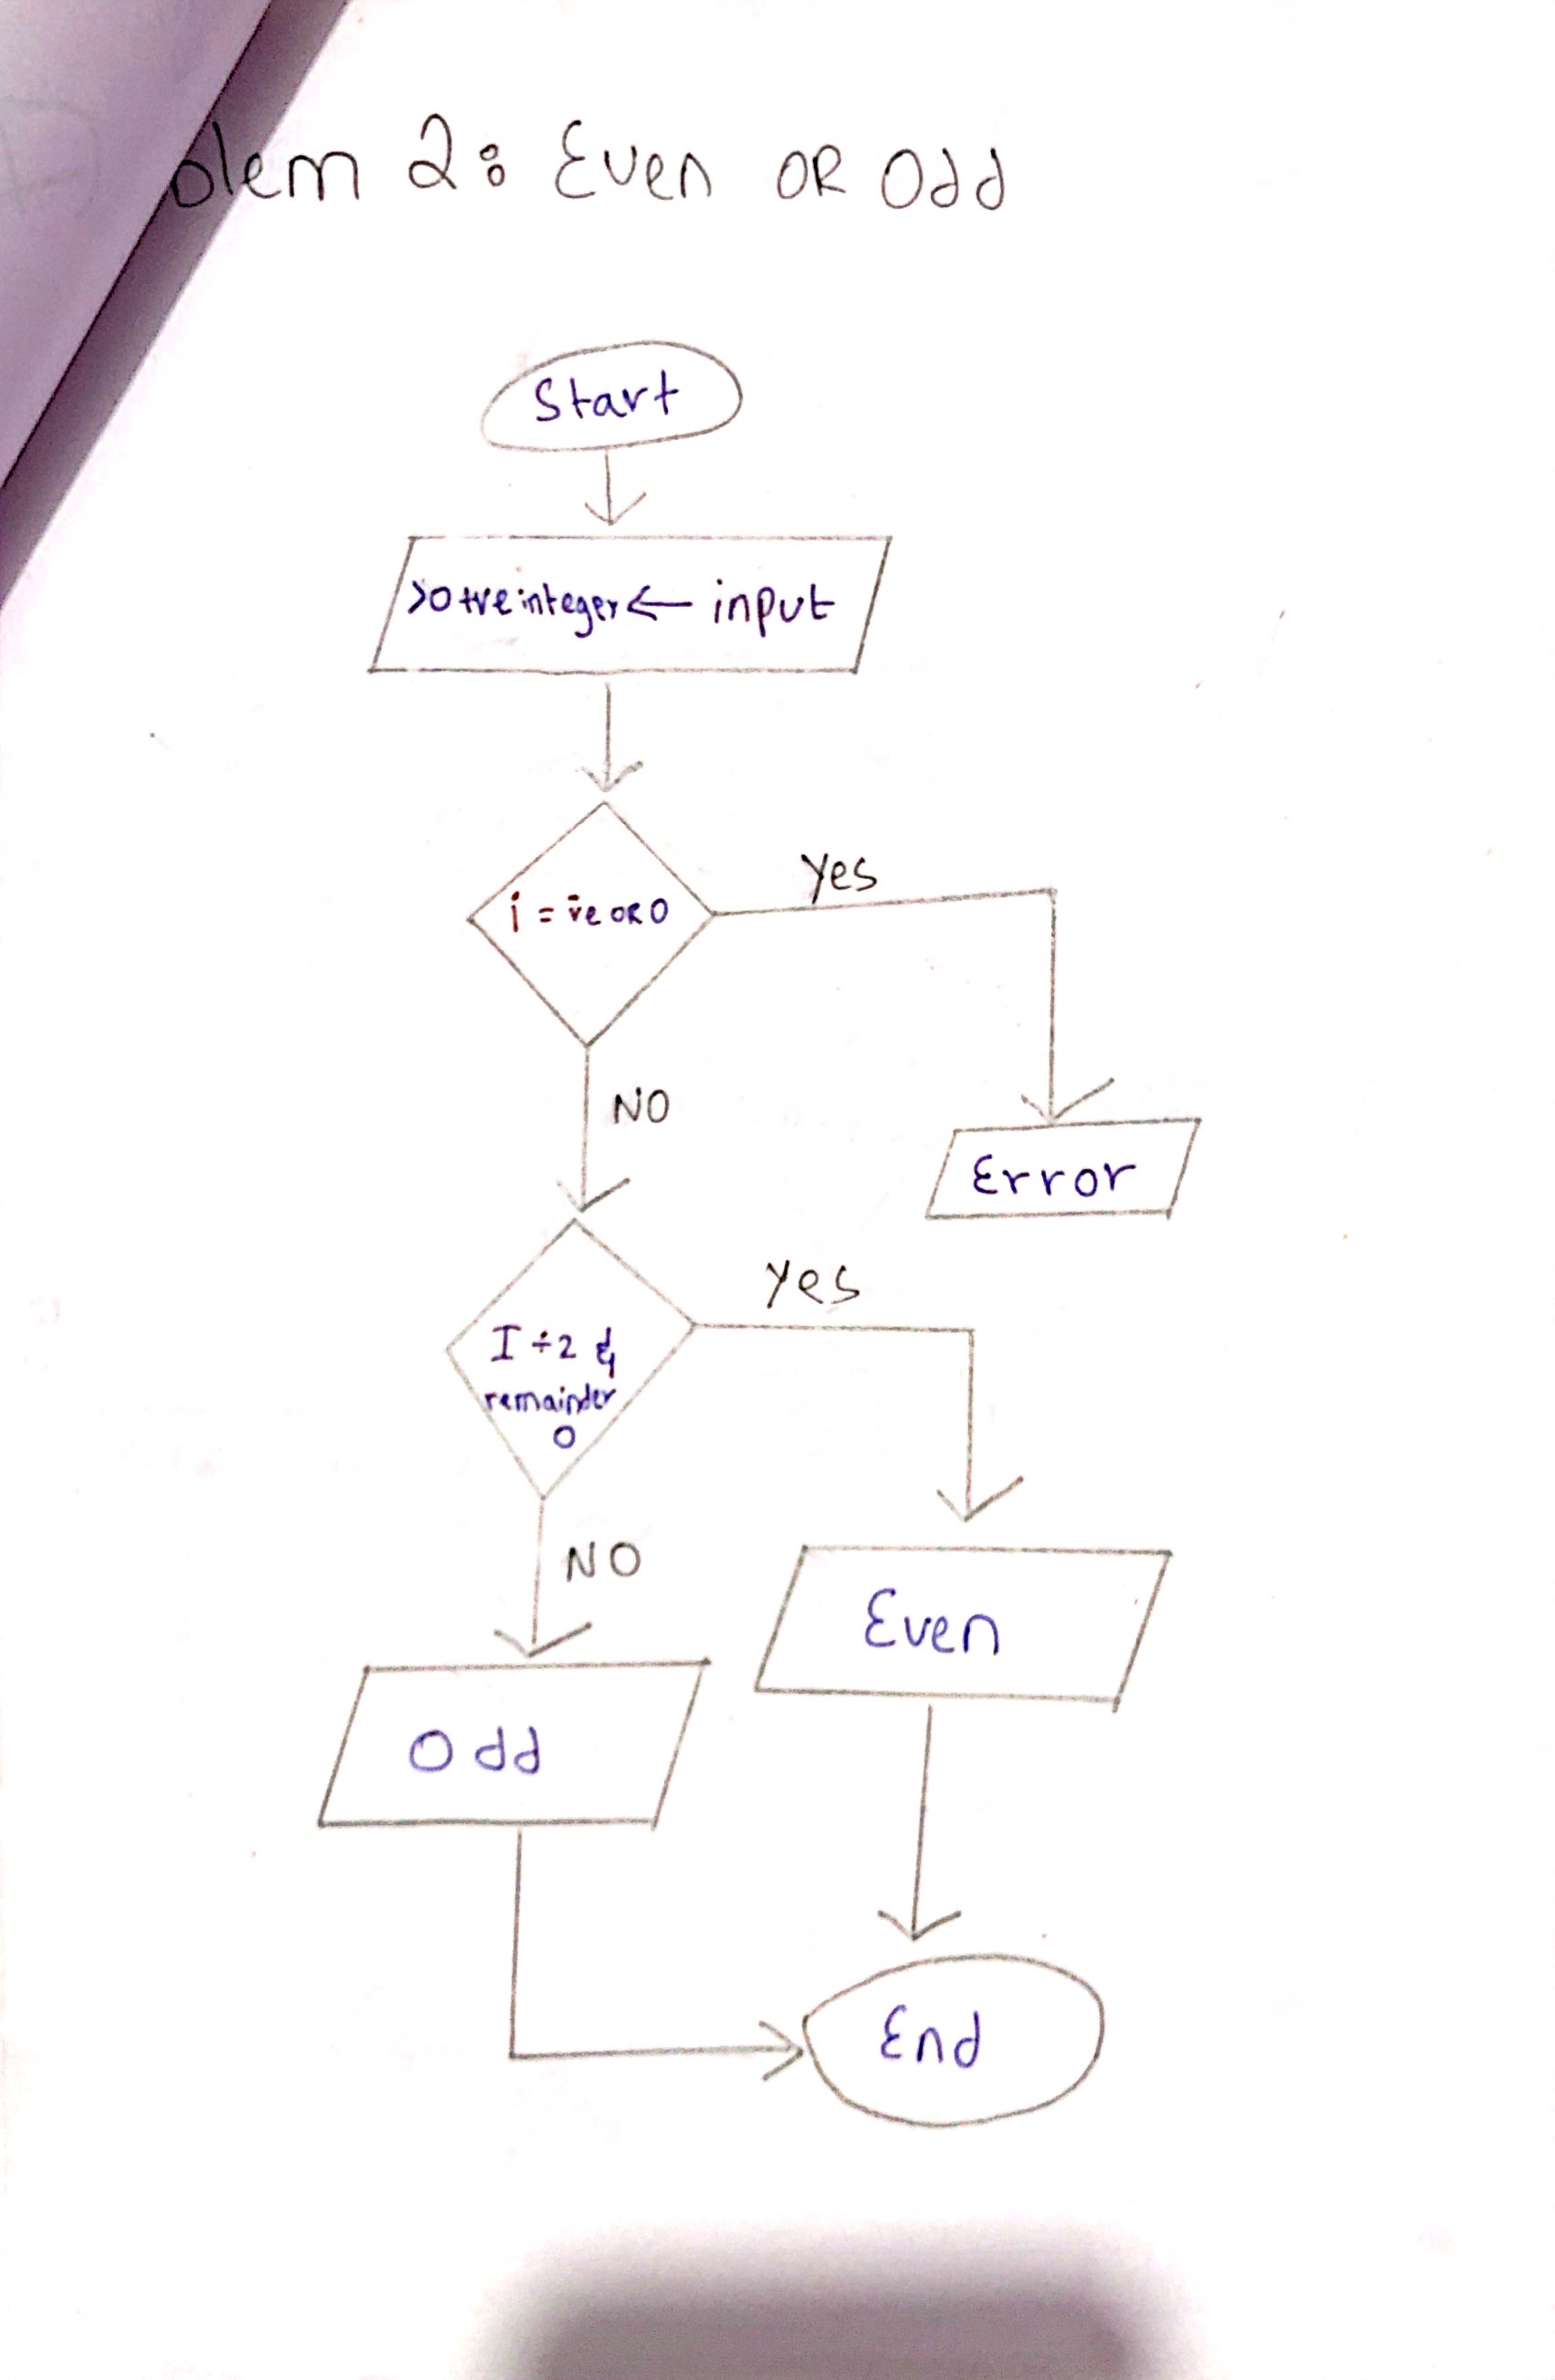 olem 2: Even OR Odd
Start
>0 +ve integer ← input
Yes
i = -ve OR 0
NO
Error
Yes
I ÷ 2 &
remainder
0
NO
Even
Odd
End